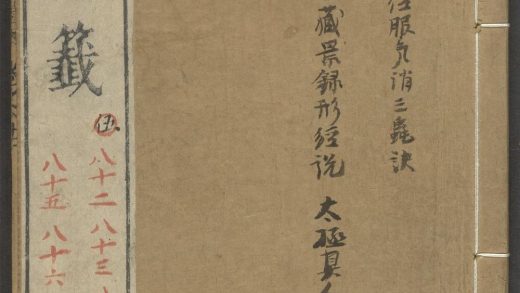 服气消三蟲訣
藏景録形經说 太極真人
籤
伍
八十二 八十三
八十五 八十六